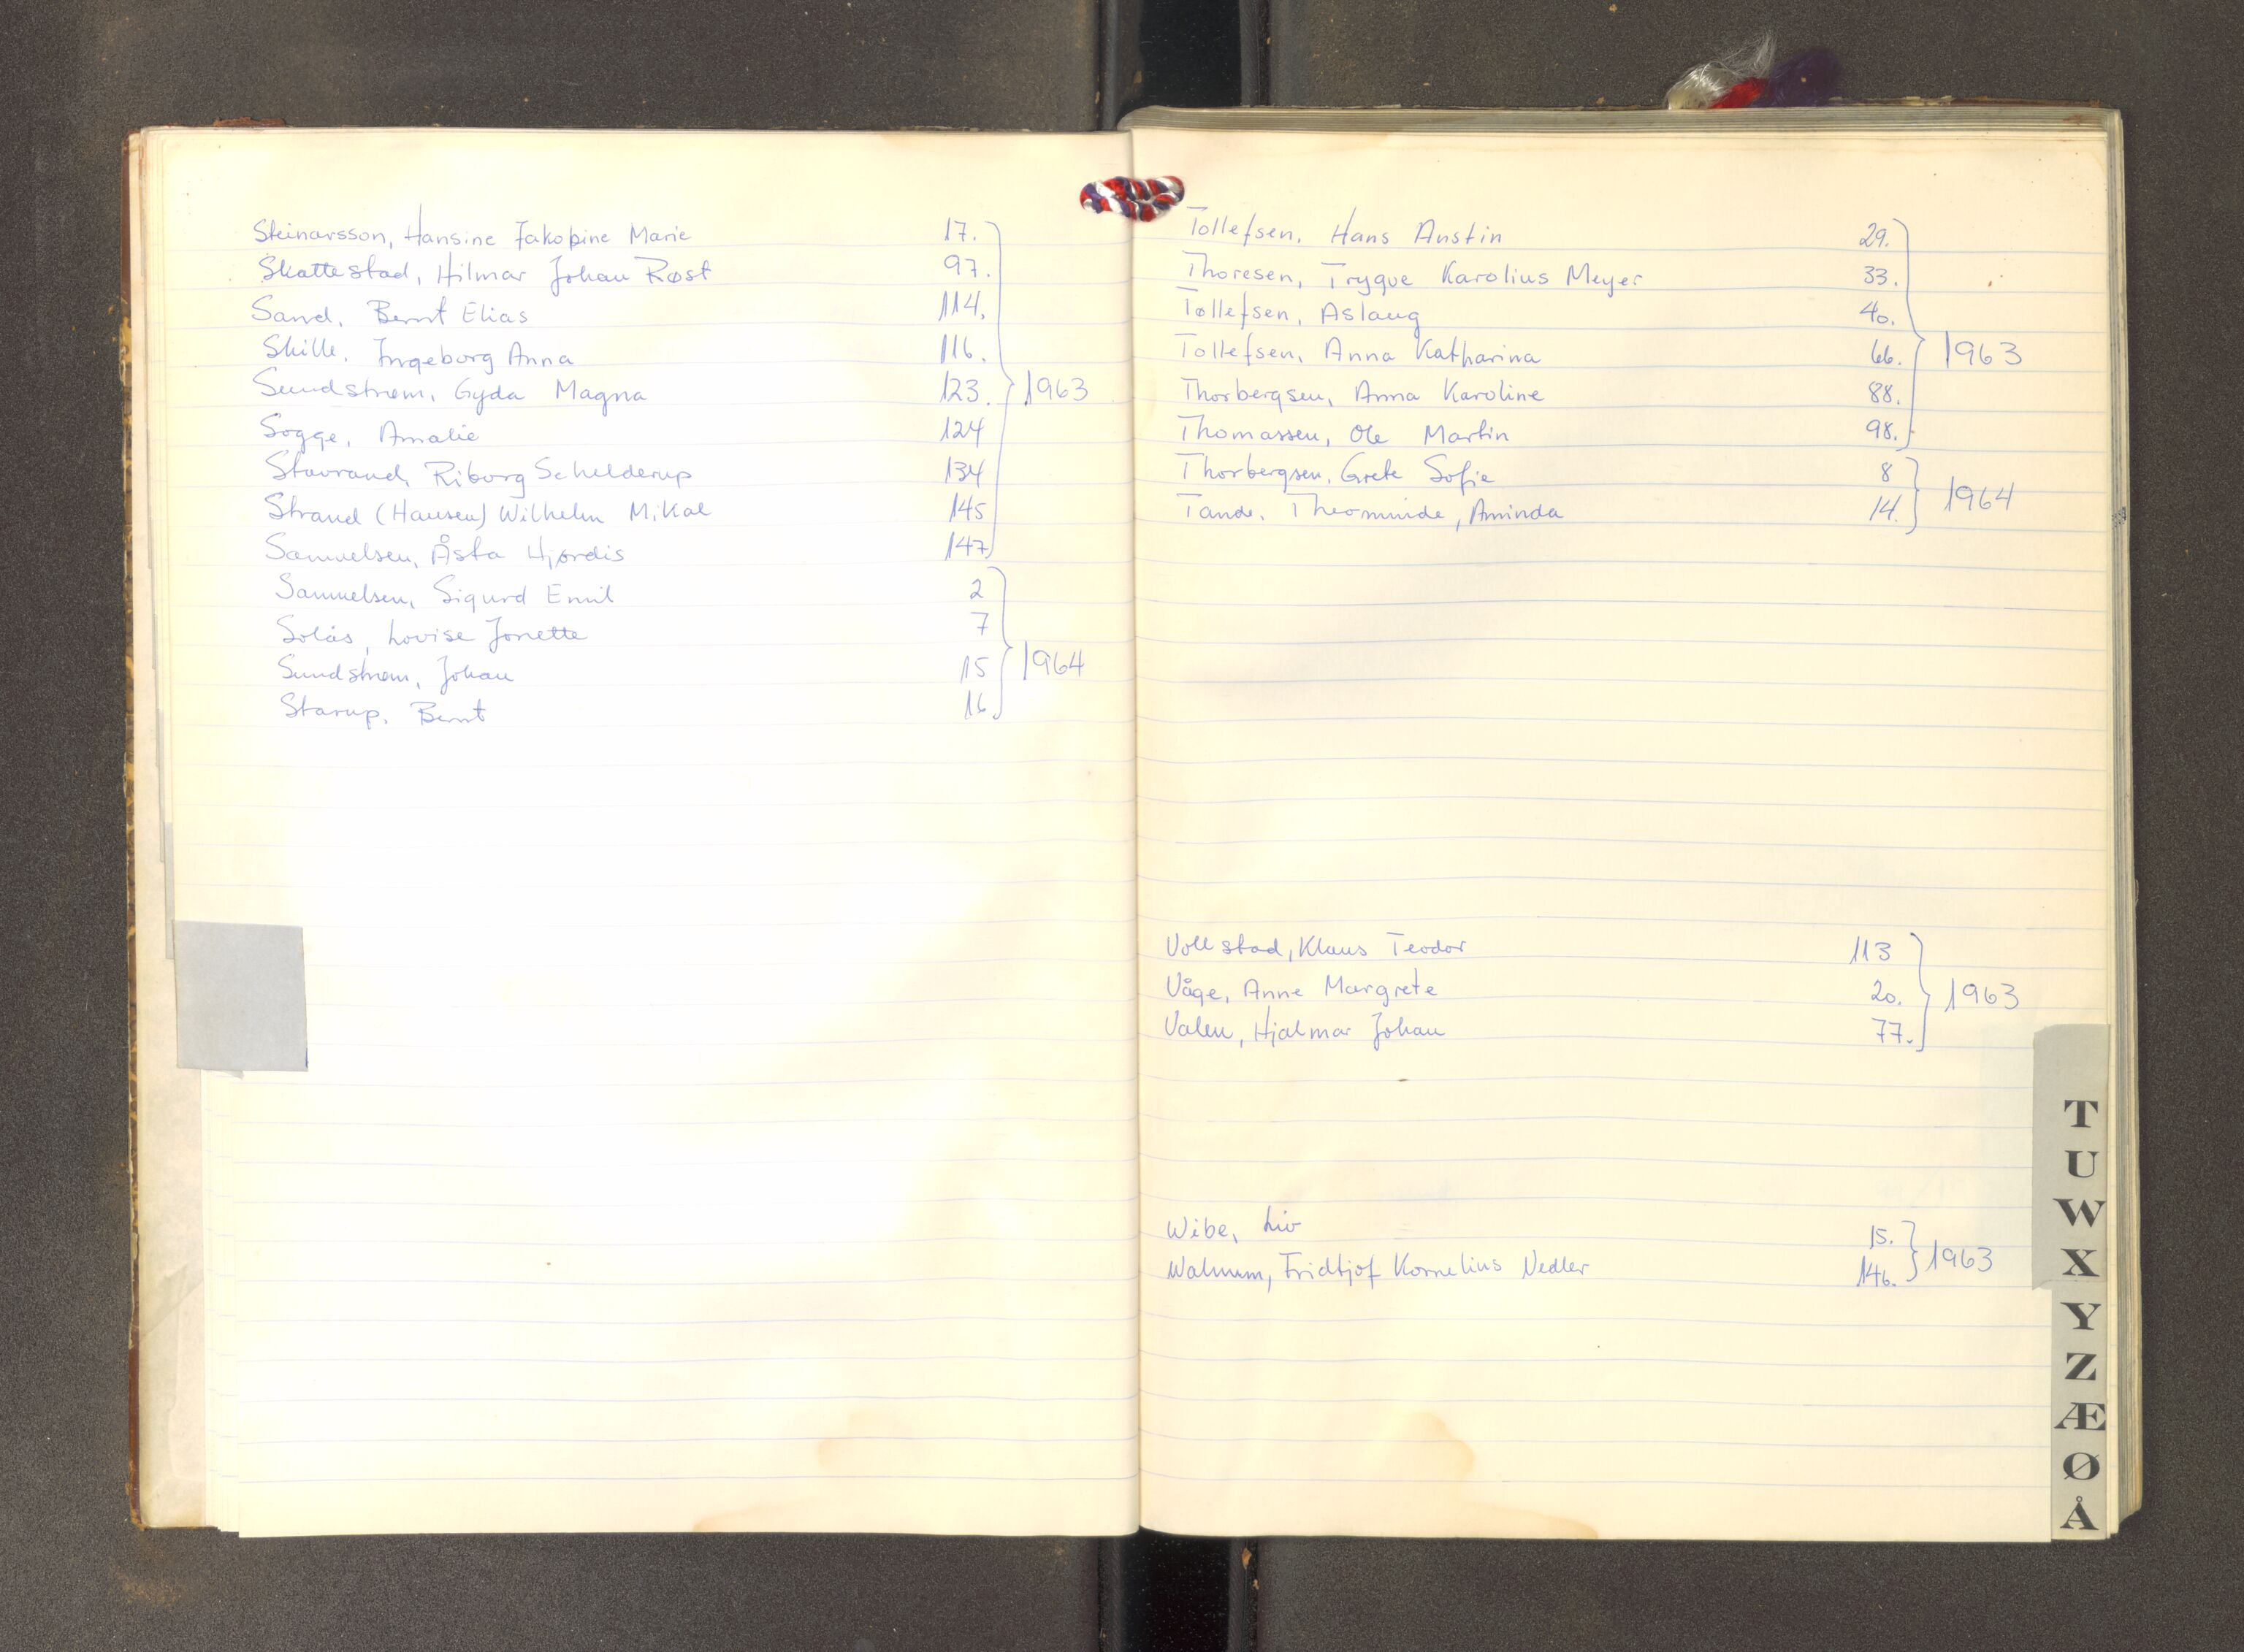 Steinarsson, Hansine Jakobine Marie 17.
Skattestad, Hilmar Johan Røst 97.
Sand, Bernt Elias 114.
Skille, Ingeborg Anna 116.
Sundstrøm, Gyda Magna 123. 1963
Sogge, Amalie 124
Stavrand, Riborg Schelderup 134
Strand (Hansen) Wilhelm Mikal 145
Samuelsen, Åsta Hjørdis 147
Samuelsen, Sigurd Emil 2
Solås, Lovise Jonette 7
Sundstrøm, Johan 15 1964
Starup, Bernt 16
Tollefsen, Hans Anstin 29.
Thoresen, Trygve Karolius Meyer 33.
Tollefsen, Aslaug 40.
Tollefsen, Anna Katharina 66. 1963
Thorbergsen, Anna Karoline 88.
Thomassen, Ole Martin 98.
Thorbergsen, Grete Sofie 8
Tande, Theominde, Aminda 14. 1964
Vollstad, Klaus Teodor 113
Våge, Anne Margrete 20. 1963
Valen, Hjalmar Johan 77.
Wibe, Liv 15.
Walnum, Fridtjof Kornelius Nedler 146. 1963
T
U
W
X
Y
Z
Æ
Ø
Å